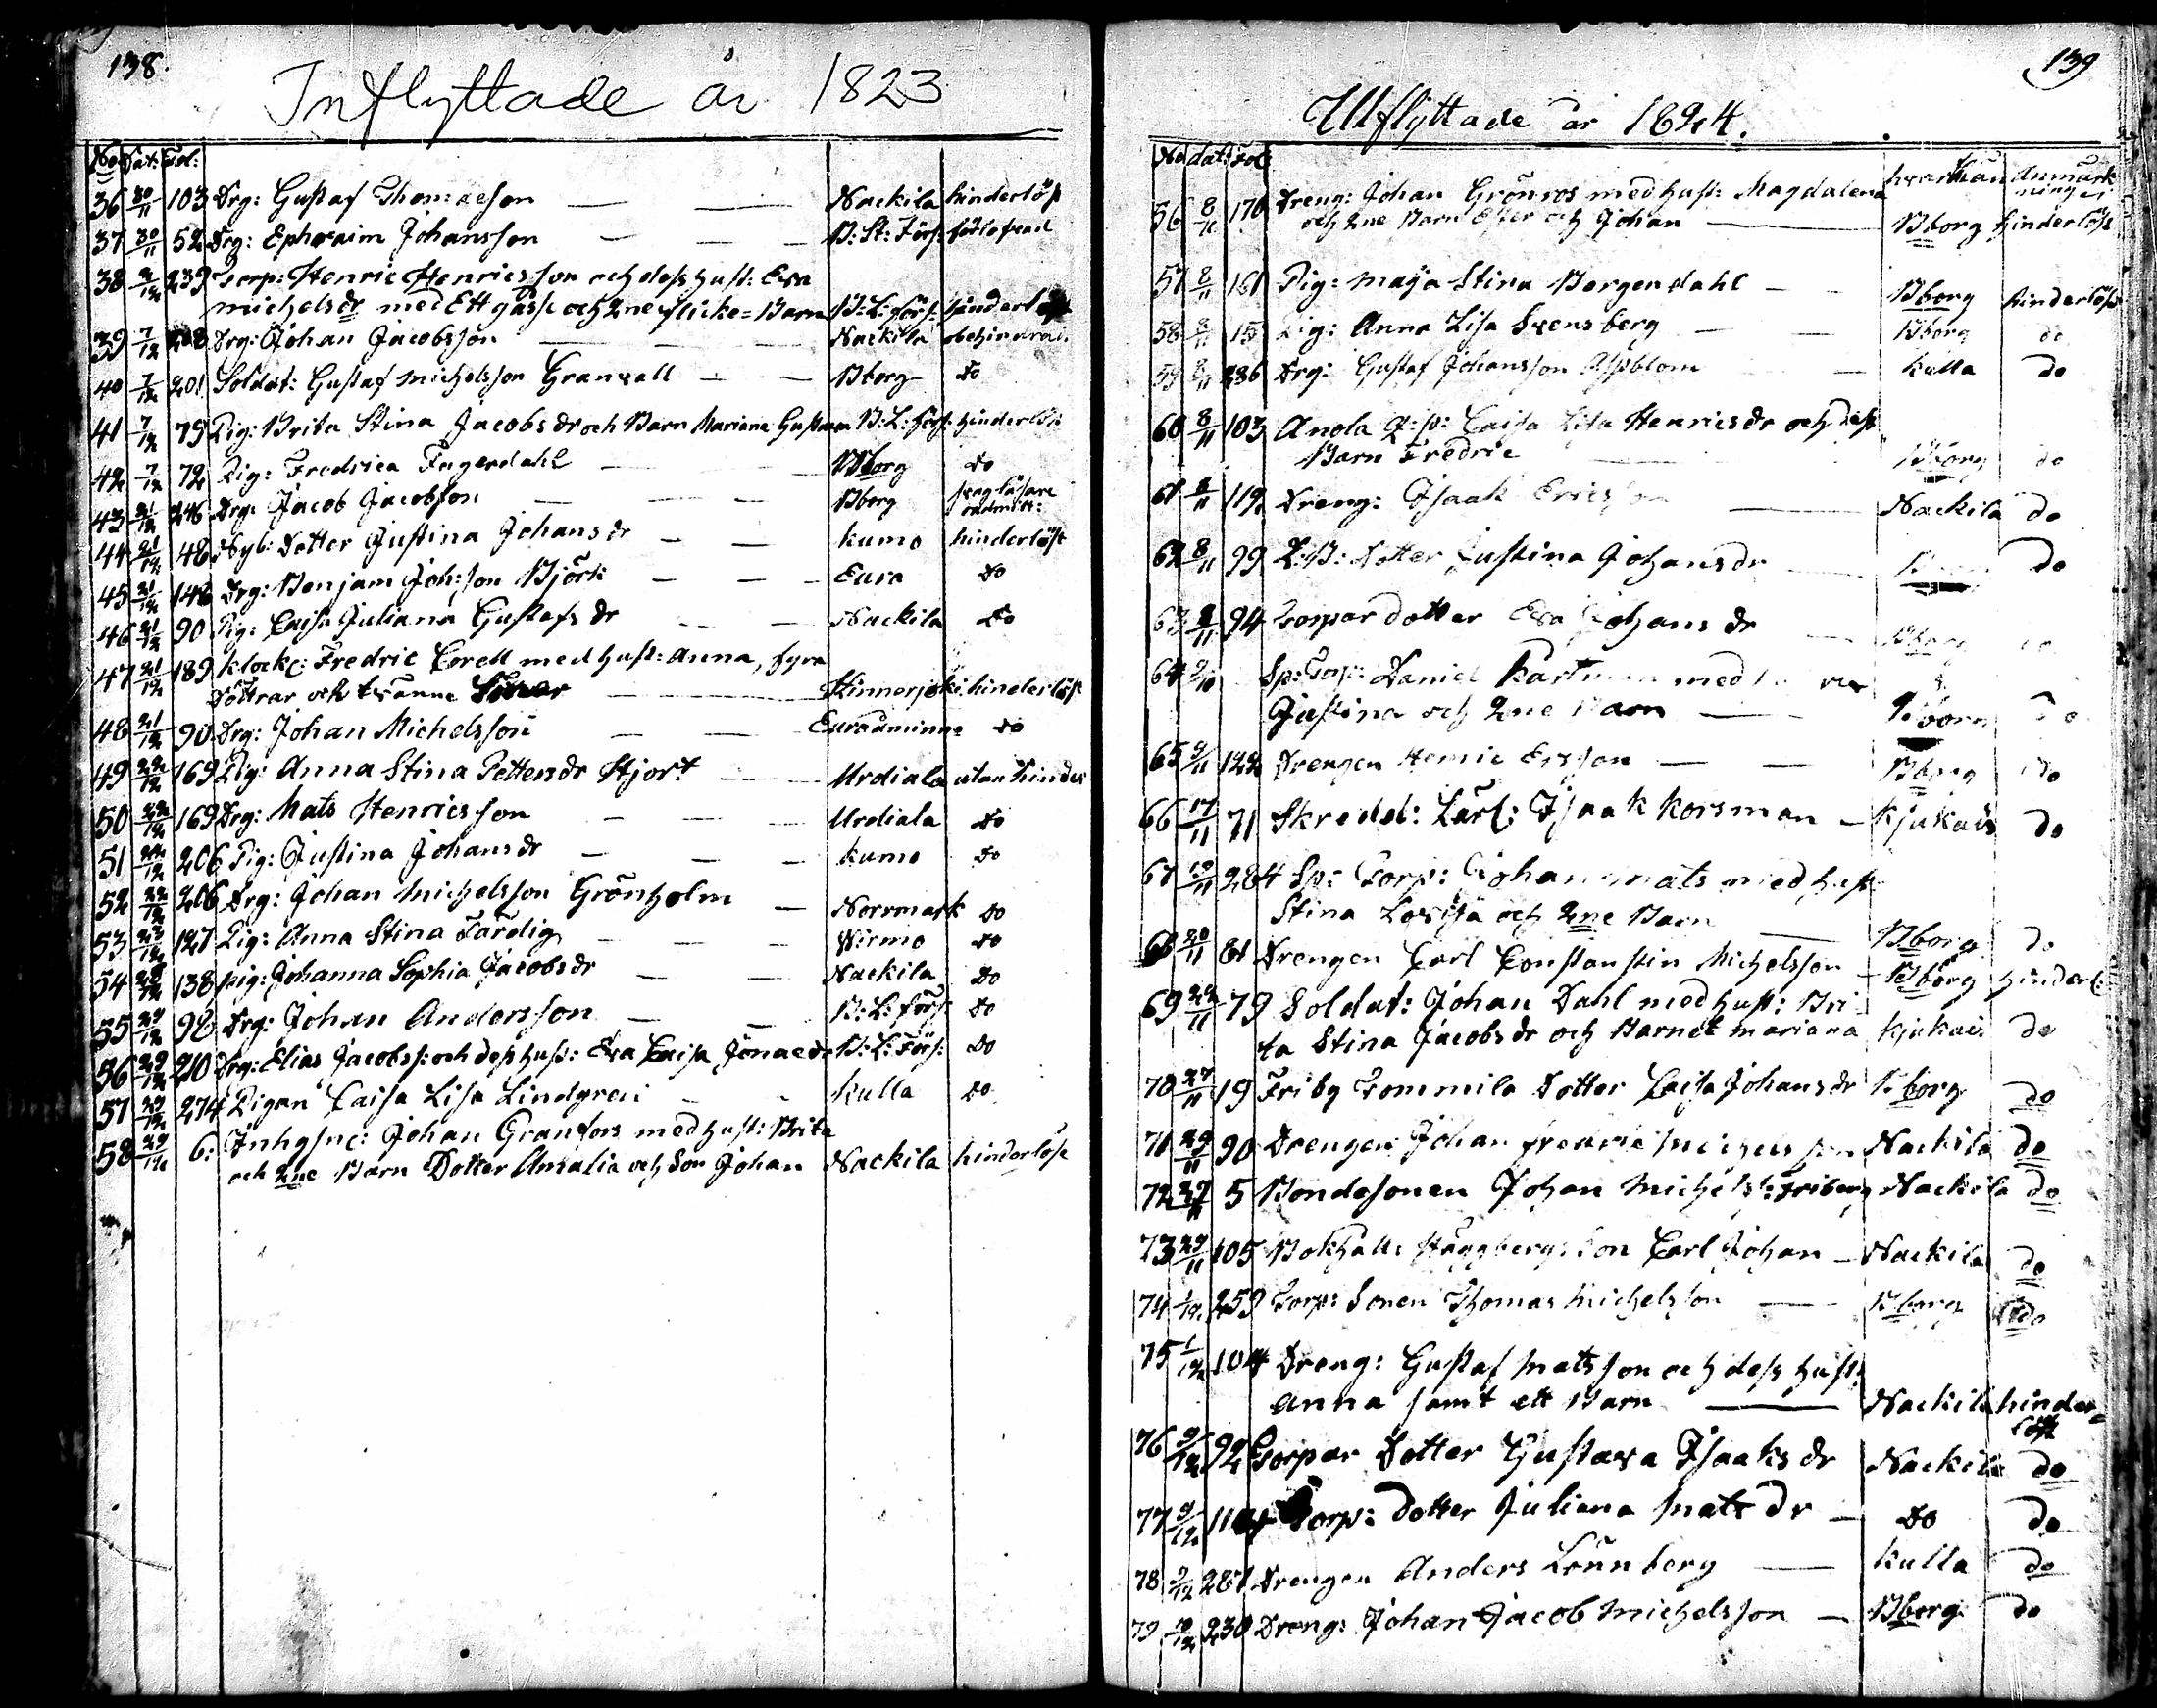 138.
Inflyttade år 1823
No Dat: Fol:
36 30/11 103 Drg: Gustaf Thomaeson — — Nackila hinderlöst
37 30/11 52 Drg: Ephraim Johansson — — B: St: Förs:
38 2/12 239 Torp: Henric Henricsson och dess hust: Eva
michelsdr med Ett gosse och 2ne flicke=Barn B: L: förs: hinderlöst
39 7/12 Drg: Johan Jacobsson — — Nackila obehindrad
40 7/12 201 Soldat: Gustaf michelsson Granvall — — Bborg Do
41 7/12 75 Pig: Brita Stina Jacobsdr och Barn Mariana Gustava B: L: förs: hinderlöst
42 7/12 72 Pig: Fredrica Fagerdahl — — Bborg Do
43 21/12 246 Drg: Jacob Jacobson — — Bborg
44 21/12 48 Nyb: Dotter Justina Johansdr — — kumo hinderlöst
45 21/12 148 Drg: Benjam Joh:son Björk — — Eura Do
46 21/12 90 Pig: Caisa Juliana Gustafsdr — — Nackila Do
47 21/12 189 klock: Fredric Corell med hust: Anna, fyra
Döttrar och tvänne Söner — Kinnerjoki hinderlöst
48 21/12 90 Drg: Johan Michelsson — — Euraåminne Do
49 22/12 169 Pig: Anna Stina Pettersdr Hjort — — Urdiala utan hinder
50 22/12 169 Drg: Mats Henricsson — — Urdiala Do
51 22/12 206 Pig: Justina Johansdr — — kumo Do
52 22/12 206 Drg: Johan Michelsson Grönholm — Norrmark Do
53 23/12 127 Pig: Anna Stina Färdig — — Virmo Do
54 28/12 138 pig: Johanna Sophia Jacobsdr — — Nackila Do
55 29/12 98 Drg: Johan Andersson — — B: L: förs: Do
56 29/12 210 Drg: Elias Jacobss: och dess hust: Eva Caisa Jonaedr B: L: Förs: Do
57 29/12 274 Pigan Caisa Lisa Lindgren — — kulla Do
58 29/12 6: Inhysne: Johan Granfors med hust: Brita
och 2ne Barn Dotter Amalia och Son Johan Nackila hinderlöst
139
Utflyttade år 1824.
No dat: Fol: hvarthän anmärkninger
56 8/11 170 Dreng: Johan Grönros med hust: Magdalena
och 2ne Barn Ester och Johan — Bborg hinderlöst
57 8/11 161 Pig: Maja Stina Bergendahl — — Bborg hinderlöst
58 8/11 15 Pig: Anna Lisa Svensberg — — Bborg do
59 8/11 286 Drg: Gustaf Johansson Aspblom — kulla do
60 8/11 103 Anola Caisa Lisa Henricsdr och dess
Barn Fredric Bborg do
61 8/11 119 Dreng: Isaak Ericsson Nackila do
62 8/11 99 Dotter Justina Johansdr — do
63 8/11 94 Torpar dotter Eva Johansdr — Bborg do
64 9/10 Sp: Torp: Daniel med
Justina och 2ne Barn — Bborg do
65 9/11 122 Drengen Henric Ersson — — Bborg do
66 17/11 71 Skredd: Lärl: Isaak korsman — Kjukais do
67 19/11 284 Sp: Torp: Johan mats med hust:
Stina Lovisa och 2ne Barn — Bborg do
68 20/11 81 Drengen Carl Constanstin Michelsson — Bborg hinderl:
69 22/11 79 Soldat: Johan Dahl med hust: Bri-
ta Stina Jacobsdr och Barnet mariana kjukais do
70 27/11 19 Friby Tommila Dotter Caisa Johansdr Bborg do
71 29/11 90 Drengen Johan fredric Michelsson Nackila do
72 29/11 5 Bondesonen Johan Michelss: Friberg Nackila do
73 29/11 105 Bokhåll: Häggbergs Son Carl Johan — Nackila do
74 1/12 259 Torp: Sonen Thomas Michelsson — Bborg do
75 1/12 104 Dreng: Gustaf matsson och dess hust:
Anna samt ett Barn — Nackila hinder=
löst
76 9/12 92 Torpar Dotter Gustava Isaksdr Nackila do
77 9/12 Torp: dotter Juliana Matsdr — Do do
78 9/12 287 Drengen Anders Lönnberg — kulla do
79 10/12 230 Dreng: Johan Jacob Michelsson — Bborg do